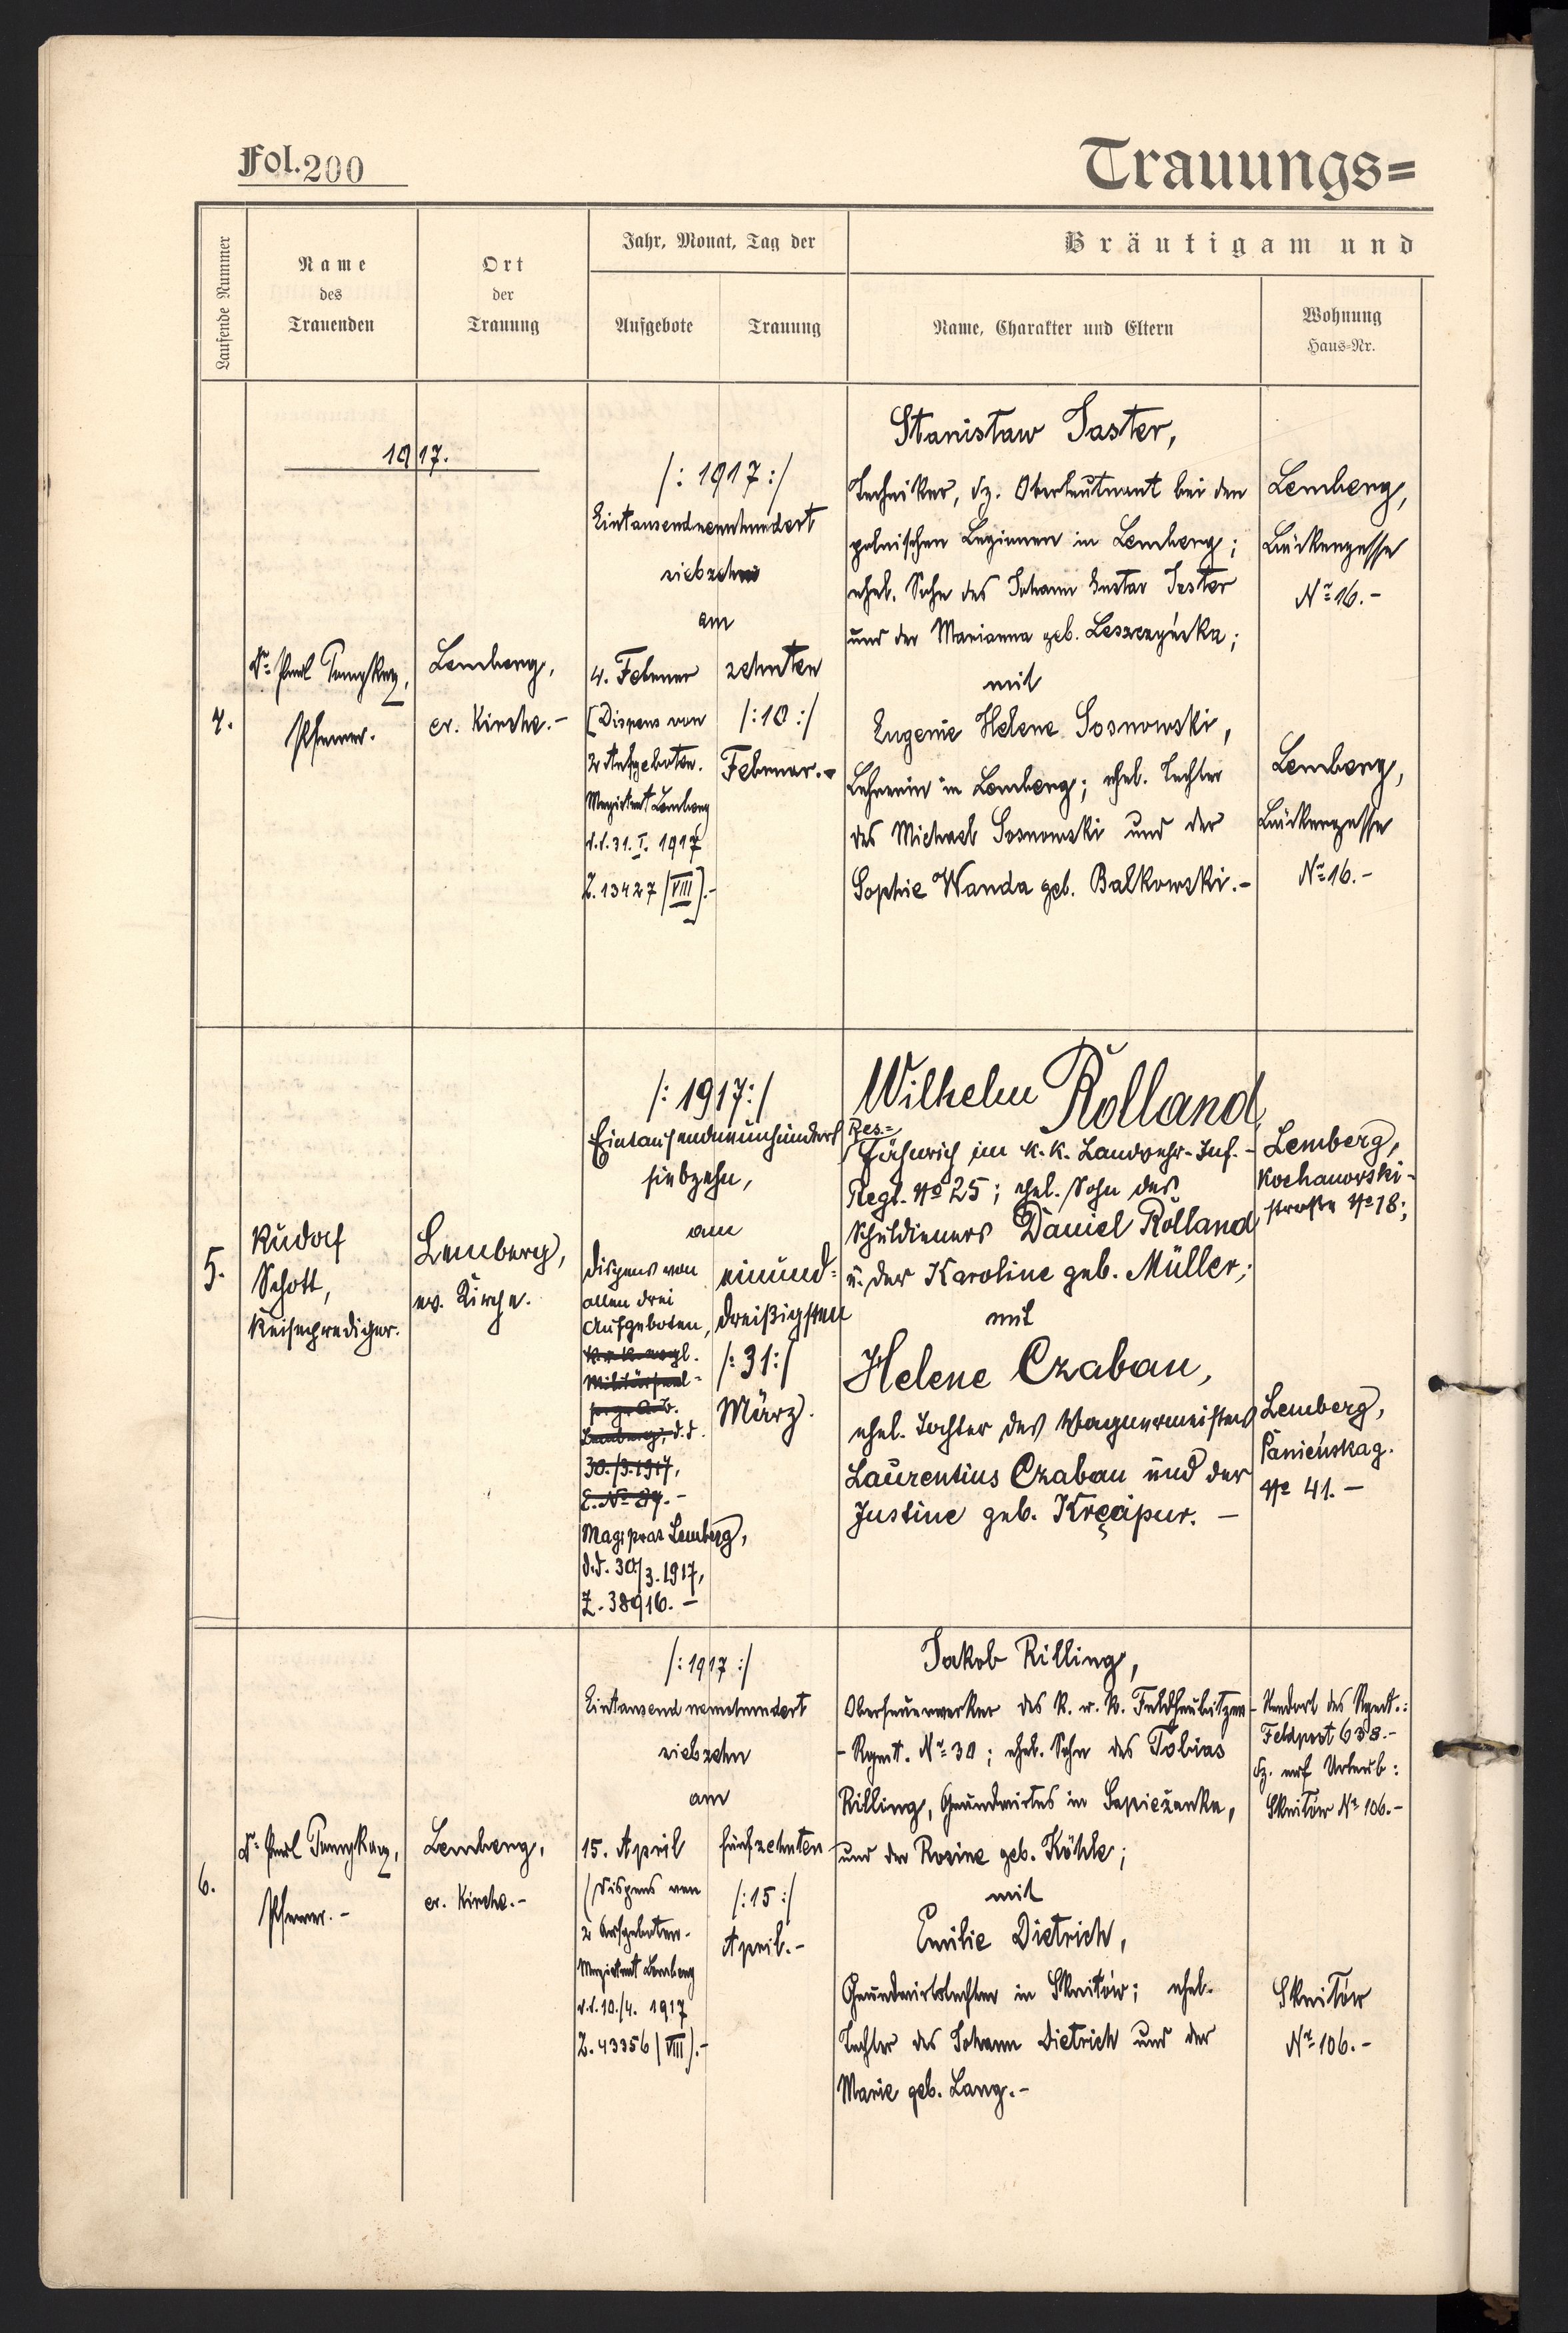 Fol. 200
Trauungs=
Laufende Nummer
Name
des
Trauenden
Ort
der
Trauung
Jahr, Monat, Tag der
Aufgebote
Trauung
Bräutigam und
Name, Charakter und Eltern
Wohnung
Haus=Nr.
1917.
4.
Pfarrer.
Lemberg,
ev. Kirche.-
/: 1917 :/
Eintausendneunhundert
siebzehn
am
4. Februar
(Dispens von
2 Aufgeboten.
Magistrat Lemberg
d.d. 31. I. 1917
Z. 13427/VIII).-
zehnten
/: 10 :/
Februar.-
Stanisław Taster,
Techniker, dz. Oberleutnant bei den
polnischen Legionen in Lemberg;
ehel. Sohn des Johann Gustav Taster
und der Marianna geb. Leszczyńska;
mit
Eugenie Helene Sosnowski,
Lehrerin in Lemberg; ehel. Tochter
des Michael Sosnowski und der
Sophie Wanda geb. Balkowski.-
Lemberg,
№ 16.-
Lemberg,
№ 16.-
5.
Rudolf
Schott,
Reiseprediger.
Lemberg,
ev. Kirche.
/: 1917 :/
Eintausendneunhundert
siebzehn,
am
Dispens von
allen drei
Aufgeboten,
Lemberg, d.d.
30./3.1917,
E. № 87.-
Magistrat Lemberg,
d.d. 30./3. 1917,
Z. 38916. -
einund=
dreißigsten
/: 31 :/
März.
Wilhelm Rolland,
Res.=
Fähnrich im k.k. Landwehr-Inf.-
Regt. № 25; ehel. Sohn des
Schuldieners Daniel Rolland
u. der Karoline geb. Müller;
mit
Helene Czaban,
ehel. Tochter des Wagnermeisters
Laurentius Czaban und der
Justine geb. -
Lemberg,
Kochanowski-
straße № 18;
Lemberg,
Panieńskag.
№ 41. -
6.
Pfarrer.-
Lemberg,
ev. Kirche.-
/: 1917 :/
Eintausendneunhundert
siebzehn
am
15. April
(Dispens von
2 Aufgeboten.
Magistrat Lemberg
d.d. 10./4. 1917
Z. 43356/VIII).-
fünfzehnten
/: 15 :/
April.-
Jakob Rilling,
Oberfeuerwerker des k. u. k. Feldhaubitzen-
- Rgmt. № 30; ehel. Sohn des Tobias
Rilling, Grundwirtes in Sapieżanka,
und der Rosine geb. Köhle;
mit
Emilie Dietrich,
Grundwirtstochter in Sknilów; ehel.
Tochter des Johann Dietrich und der
Marie geb. Lang.-
Standort des Rgmt.:
Feldpost 638.-
dz. auf Urlaub:
Sknilów № 106.-
Sknilów
№ 106.-